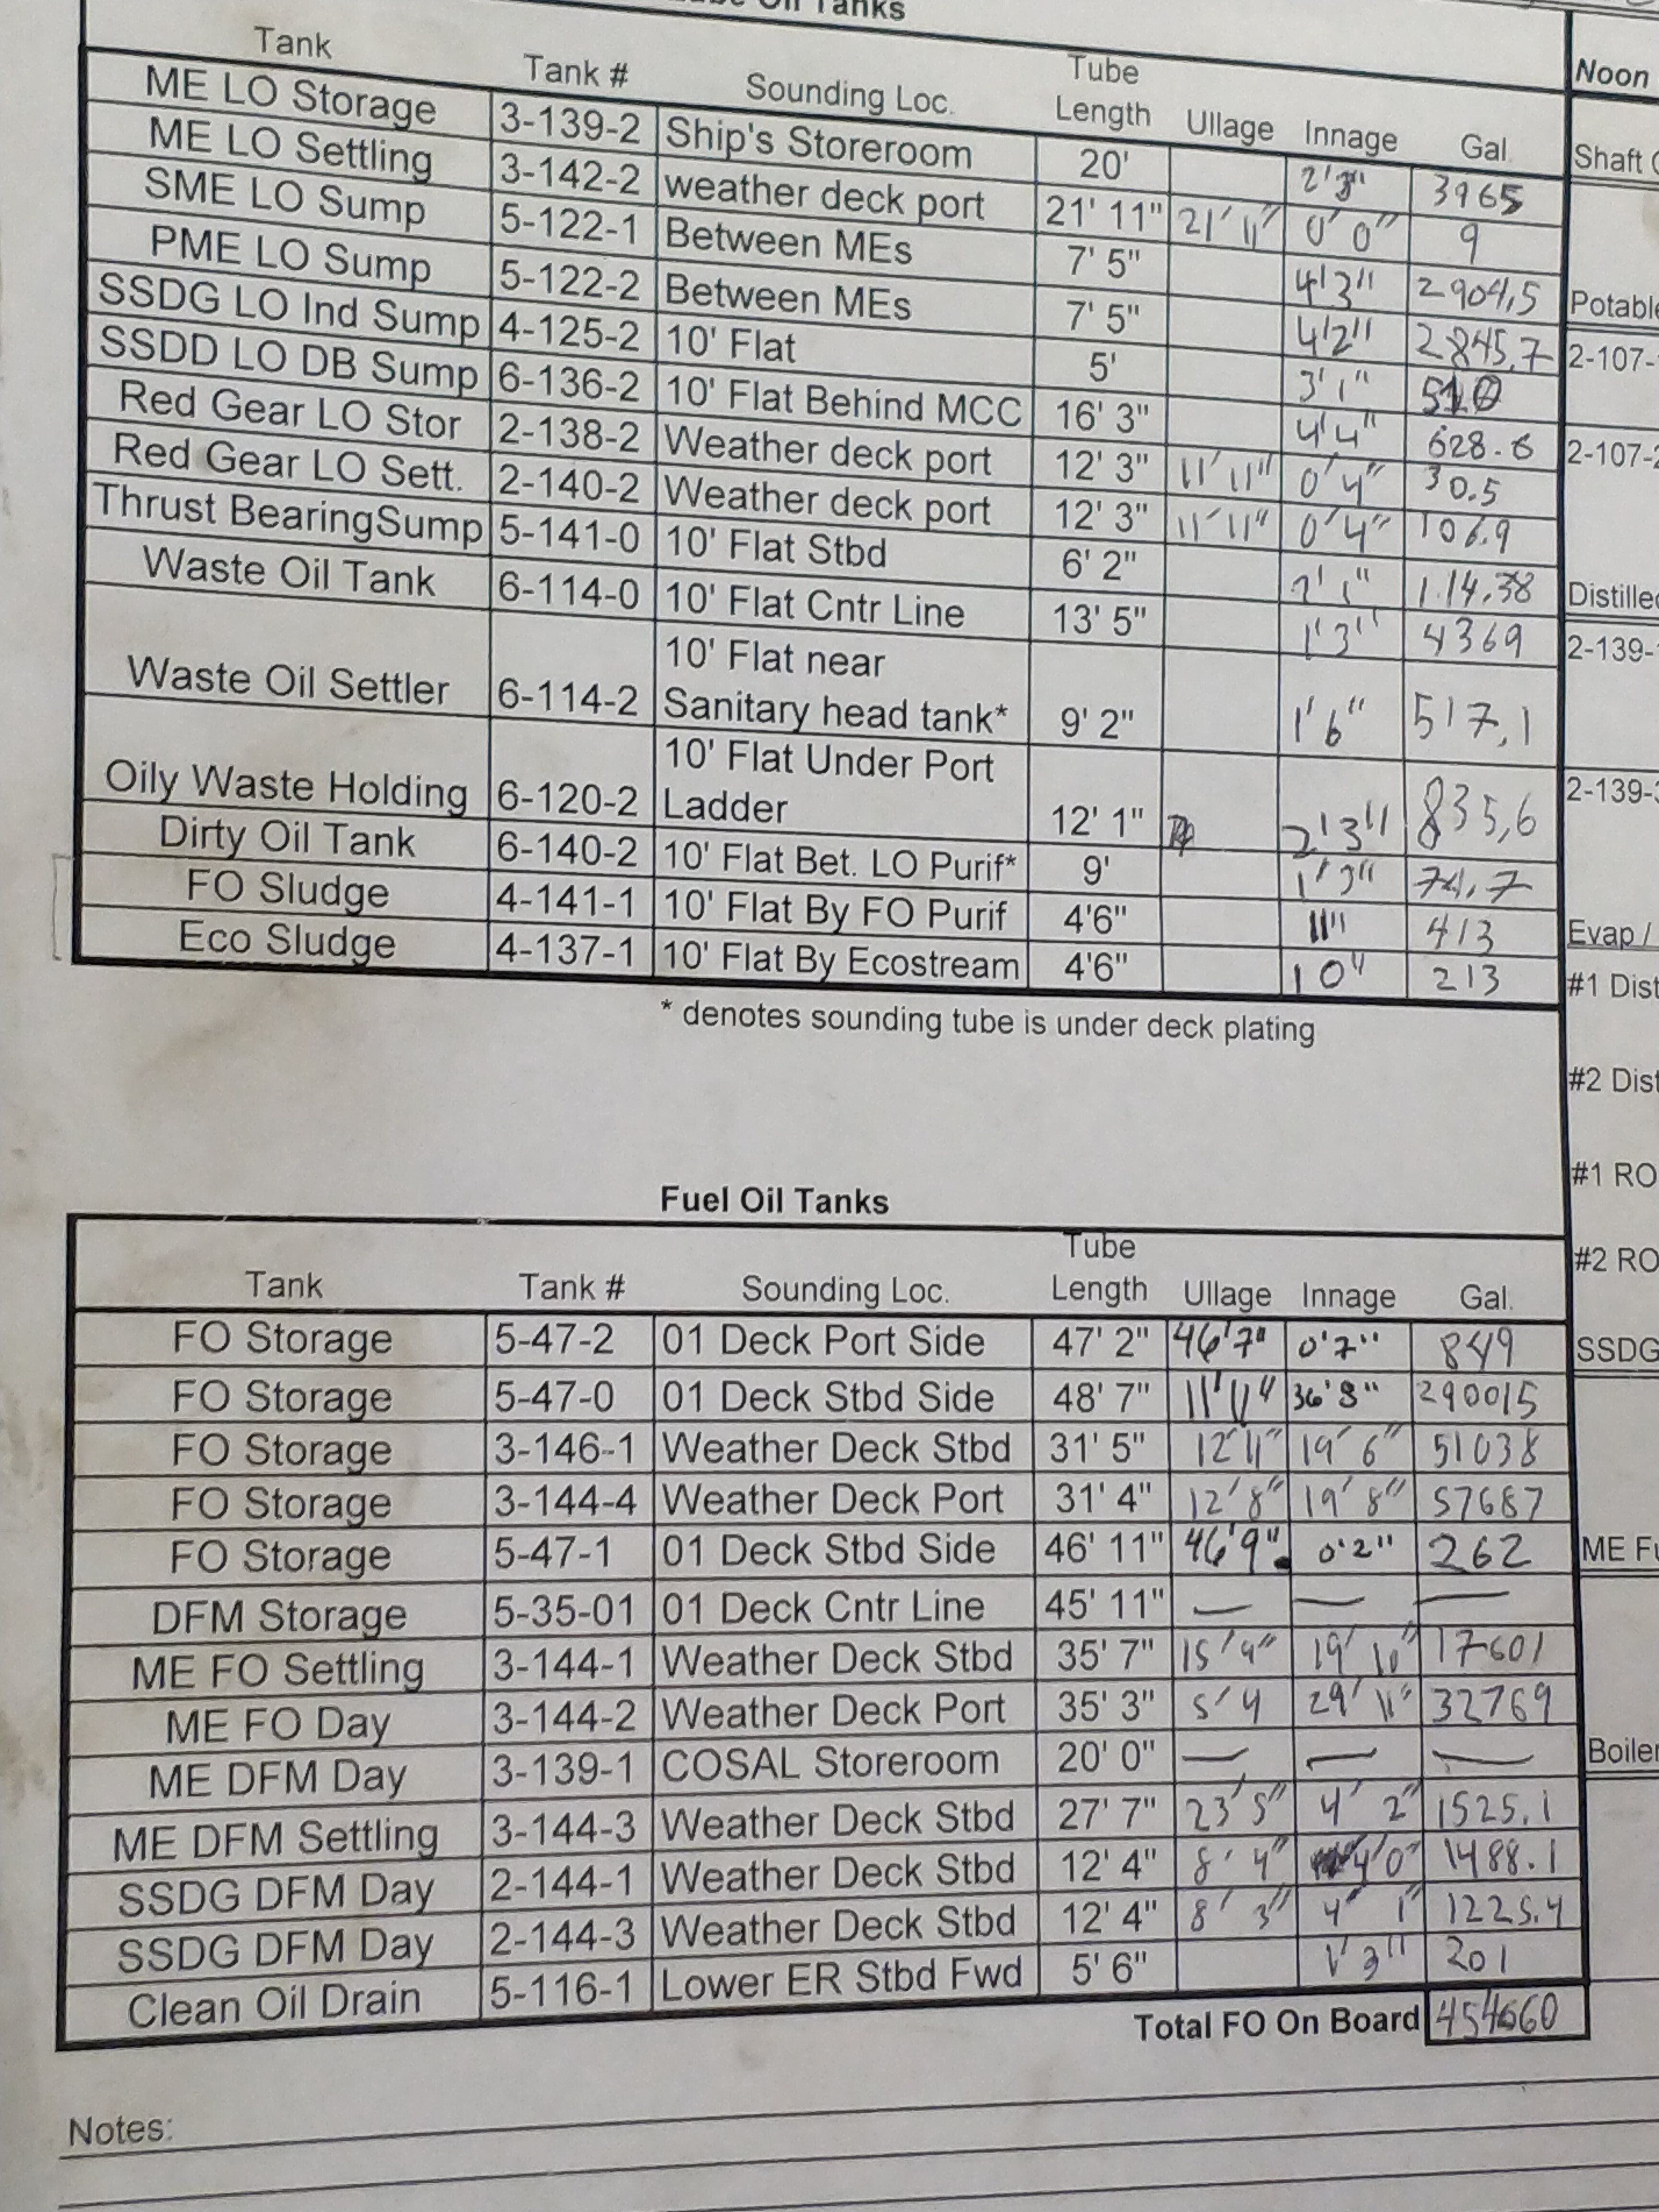 Oil Tanks
Tank Tank # Sounding Loc. Tube Length Ullage Innage Gal.
ME LO Storage 3-139-2 Ship's Storeroom 20' 2'3" 3965
ME LO Settling 3-142-2 weather deck port 21' 11" 21' 11" 0' 0" 9
SME LO Sump 5-122-1 Between MEs 7' 5" 4'3" 2904,5
PME LO Sump 5-122-2 Between MEs 7' 5" 4'2" 2845,7
SSDG LO Ind Sump 4-125-2 10' Flat 5' 3'1"
SSDD LO DB Sump 6-136-2 10' Flat Behind MCC 16' 3" 4'4" 628.6
Red Gear LO Stor 2-138-2 Weather deck port 12' 3" 11' 11" 0' 4" 30.5
Red Gear LO Sett. 2-140-2 Weather deck port 12' 3" 11' 11" 0' 4" 106.9
Thrust BearingSump 5-141-0 10' Flat Stbd 6' 2" 2' 1" 114.38
Waste Oil Tank 6-114-0 10' Flat Cntr Line 13' 5" 1'3" 4369
Waste Oil Settler 6-114-2 10' Flat near Sanitary head tank* 9' 2" 1'6" 517,1
Oily Waste Holding 6-120-2 10' Flat Under Port Ladder 12' 1" 2'3" 835,6
Dirty Oil Tank 6-140-2 10' Flat Bet. LO Purif* 9' 1'3" 74,7
FO Sludge 4-141-1 10' Flat By FO Purif 4'6" 11" 413
Eco Sludge 4-137-1 10' Flat By Ecostream 4'6" 10" 213
* denotes sounding tube is under deck plating
Fuel Oil Tanks
Tank Tank # Sounding Loc. Tube Length Ullage Innage Gal.
FO Storage 5-47-2 01 Deck Port Side 47' 2" 46'7" 0'7" 849
FO Storage 5-47-0 01 Deck Stbd Side 48' 7" 11'11" 36'8" 290015
FO Storage 3-146-1 Weather Deck Stbd 31' 5" 12'11" 19' 6" 51038
FO Storage 3-144-4 Weather Deck Port 31' 4" 12' 8" 19' 8" 57687
FO Storage 5-47-1 01 Deck Stbd Side 46' 11" 46'9" 0'2" 262
DFM Storage 5-35-01 01 Deck Cntr Line 45' 11" — — —
ME FO Settling 3-144-1 Weather Deck Stbd 35' 7" 15' 9" 19' 10" 17601
ME FO Day 3-144-2 Weather Deck Port 35' 3" 5' 4 29' 11" 32769
ME DFM Day 3-139-1 COSAL Storeroom 20' 0" — — —
ME DFM Settling 3-144-3 Weather Deck Stbd 27' 7" 23' 5" 4' 2" 1525.1
SSDG DFM Day 2-144-1 Weather Deck Stbd 12' 4" 8' 4" 4'0" 1488.1
SSDG DFM Day 2-144-3 Weather Deck Stbd 12' 4" 8' 3" 4' 1" 1225.4
Clean Oil Drain 5-116-1 Lower ER Stbd Fwd 5' 6" 1' 3" 201
Total FO On Board 454660
Notes:
Noon
Shaft
Potable
2-107-
2-107-2
Distilled
2-139-
2-139-3
Evap /
#1 Dist
#2 Dist
#1 RO
#2 RO
SSDG
ME Fu
Boiler